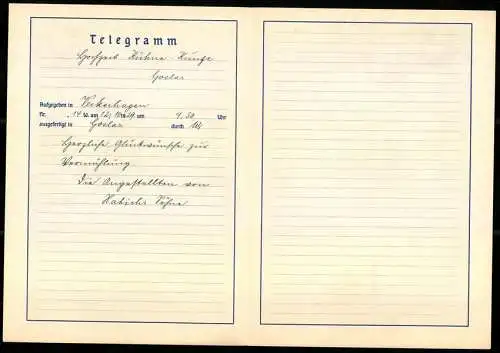 Telegramm
Hochzeit Kühne - Kunze
Goslar
Aufgegeben in Veckerhagen
Nr. 14 W. am 12/10 29 um 9.30 Uhr
ausgefertigt in Goslar durch
Herzliche Glückwünsche zur
Vermählung
Die Angestellten von
Habichs Söhne